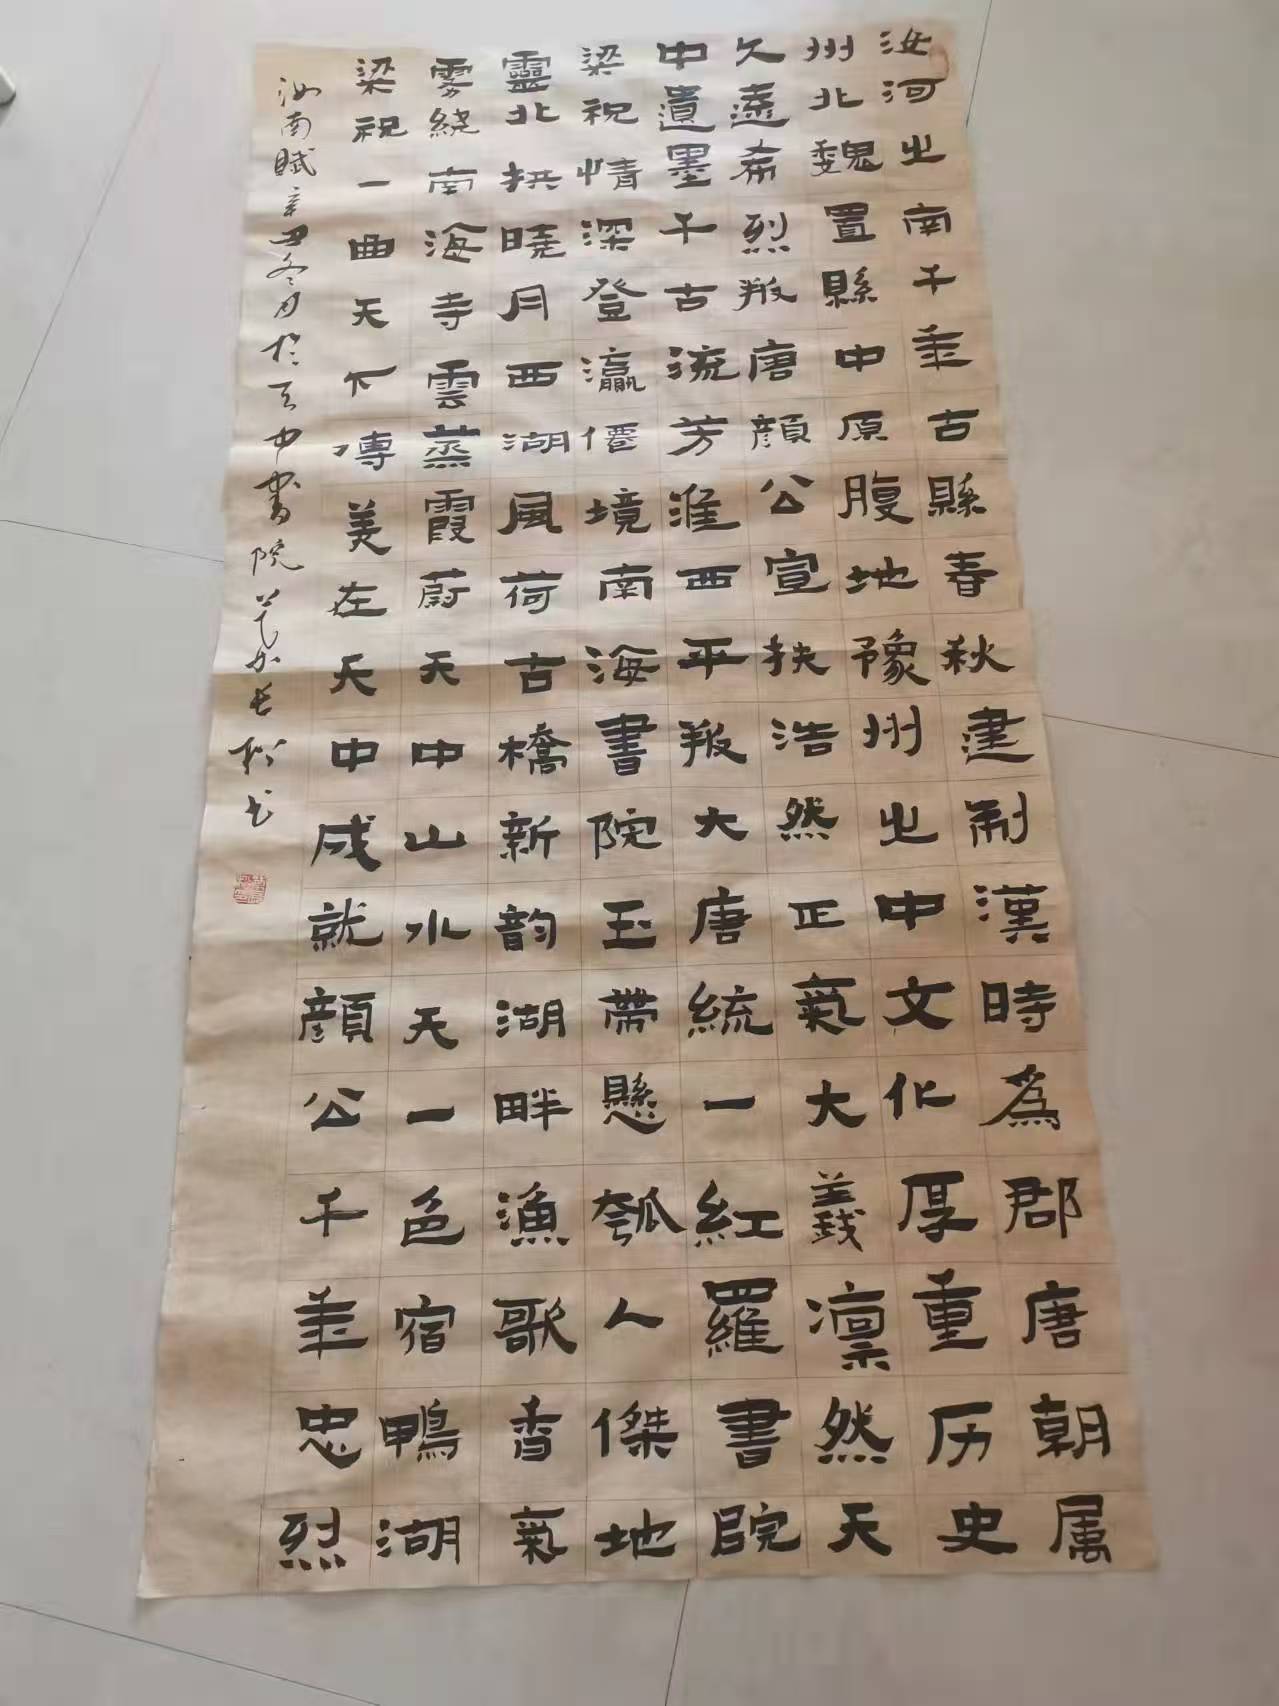 汝河之南千年古縣春秋建制漢時為郡唐朝属
州北魏置縣中原腹地豫州之中文化厚重历史
久遠希烈叛唐顔公宣抚浩然正氣大義凛然天
中遺墨千古流芳淮西平叛大唐統一紅羅書院
梁祝情深登瀛僊境南海書院玉帶懸瓠人傑地
靈北拱曉月西湖風荷古橋新韵湖畔漁歌香氣
雾繞南海寺雲蒸霞蔚天中山水天一色宿鴨湖
梁祝一曲天下傳美在天中成就顔公千年忠烈
汝南賦辛丑冬月於天中書院